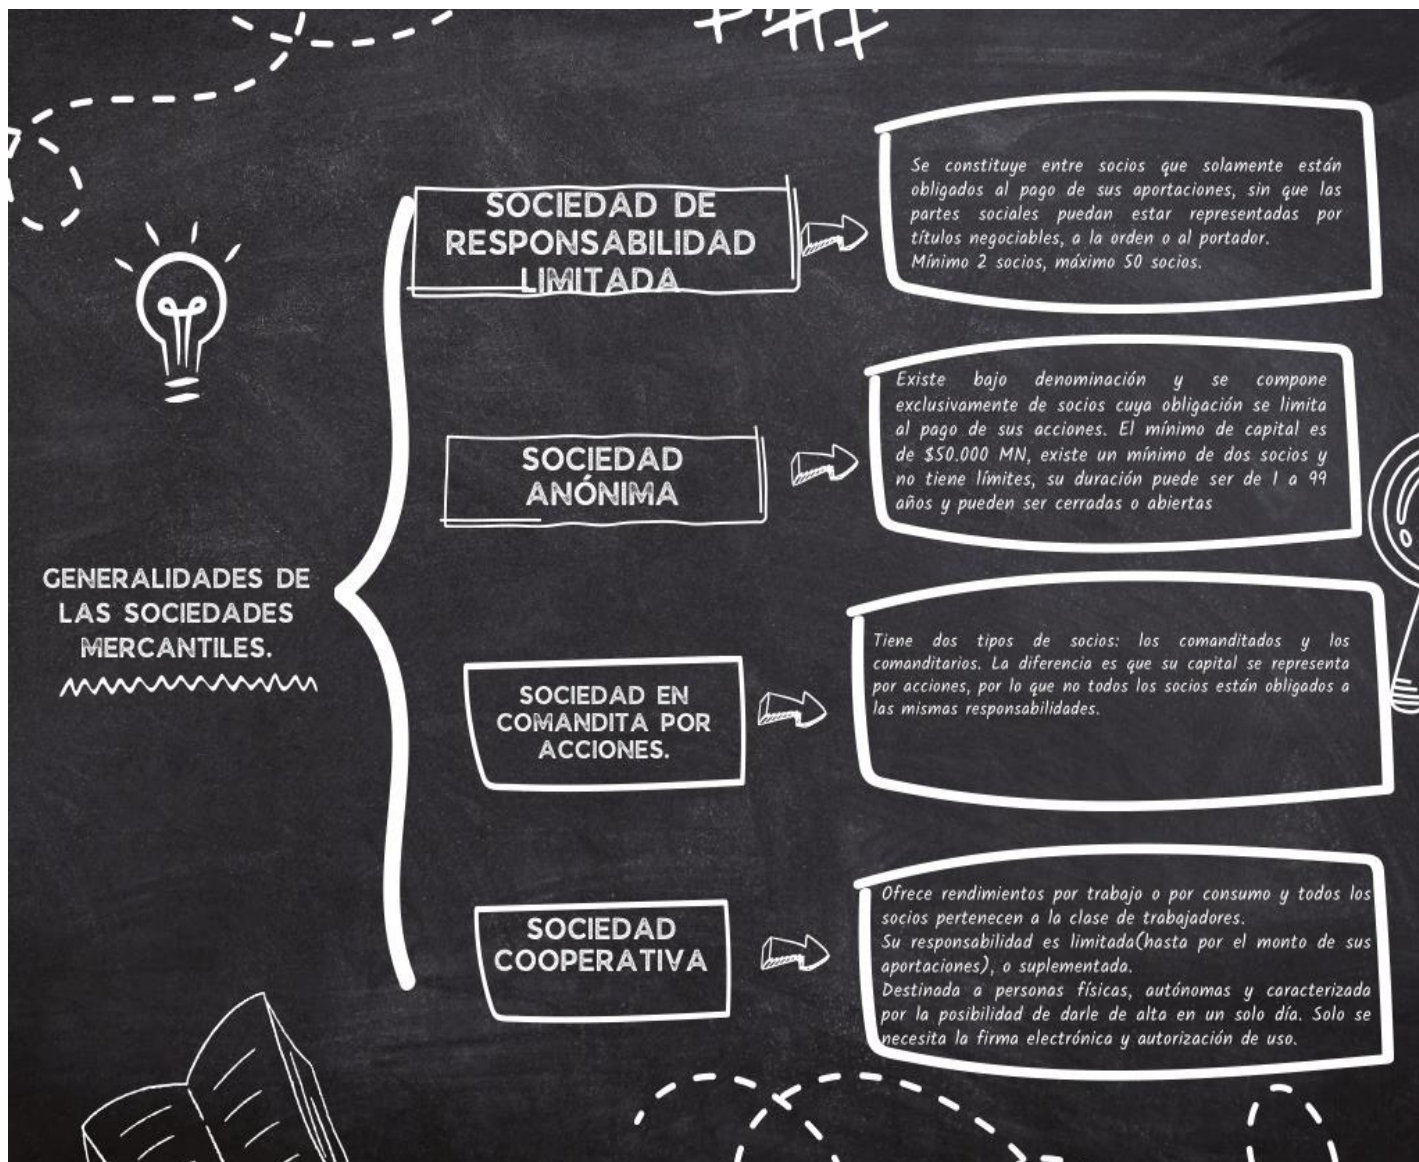 GENERALIDADES DE
LAS SOCIEDADES
MERCANTILES.
SOCIEDAD DE
RESPONSABILIDAD
LIMITADA
Se constituye entre socios que solamente están
obligados al pago de sus aportaciones, sin que las
partes sociales puedan estar representadas por
títulos negociables, a la orden o al portador.
Mínimo 2 socios, máximo 50 socios.
SOCIEDAD
ANÓNIMA
Existe bajo denominación y se compone
exclusivamente de socios cuya obligación se limita
al pago de sus acciones. El mínimo de capital es
de $50.000 MN, existe un mínimo de dos socios y
no tiene límites, su duración puede ser de 1 a 99
años y pueden ser cerradas o abiertas
SOCIEDAD EN
COMANDITA POR
ACCIONES.
Tiene dos tipos de socios: los comanditados y los
comanditarios. La diferencia es que su capital se representa
por acciones, por lo que no todos los socios están obligados a
las mismas responsabilidades.
SOCIEDAD
COOPERATIVA
Ofrece rendimientos por trabajo o por consumo y todos los
socios pertenecen a la clase de trabajadores.
Su responsabilidad es limitada(hasta por el monto de sus
aportaciones), o suplementada.
Destinada a personas físicas, autónomas y caracterizada
por la posibilidad de darle de alta en un solo día. Solo se
necesita la firma electrónica y autorización de uso.